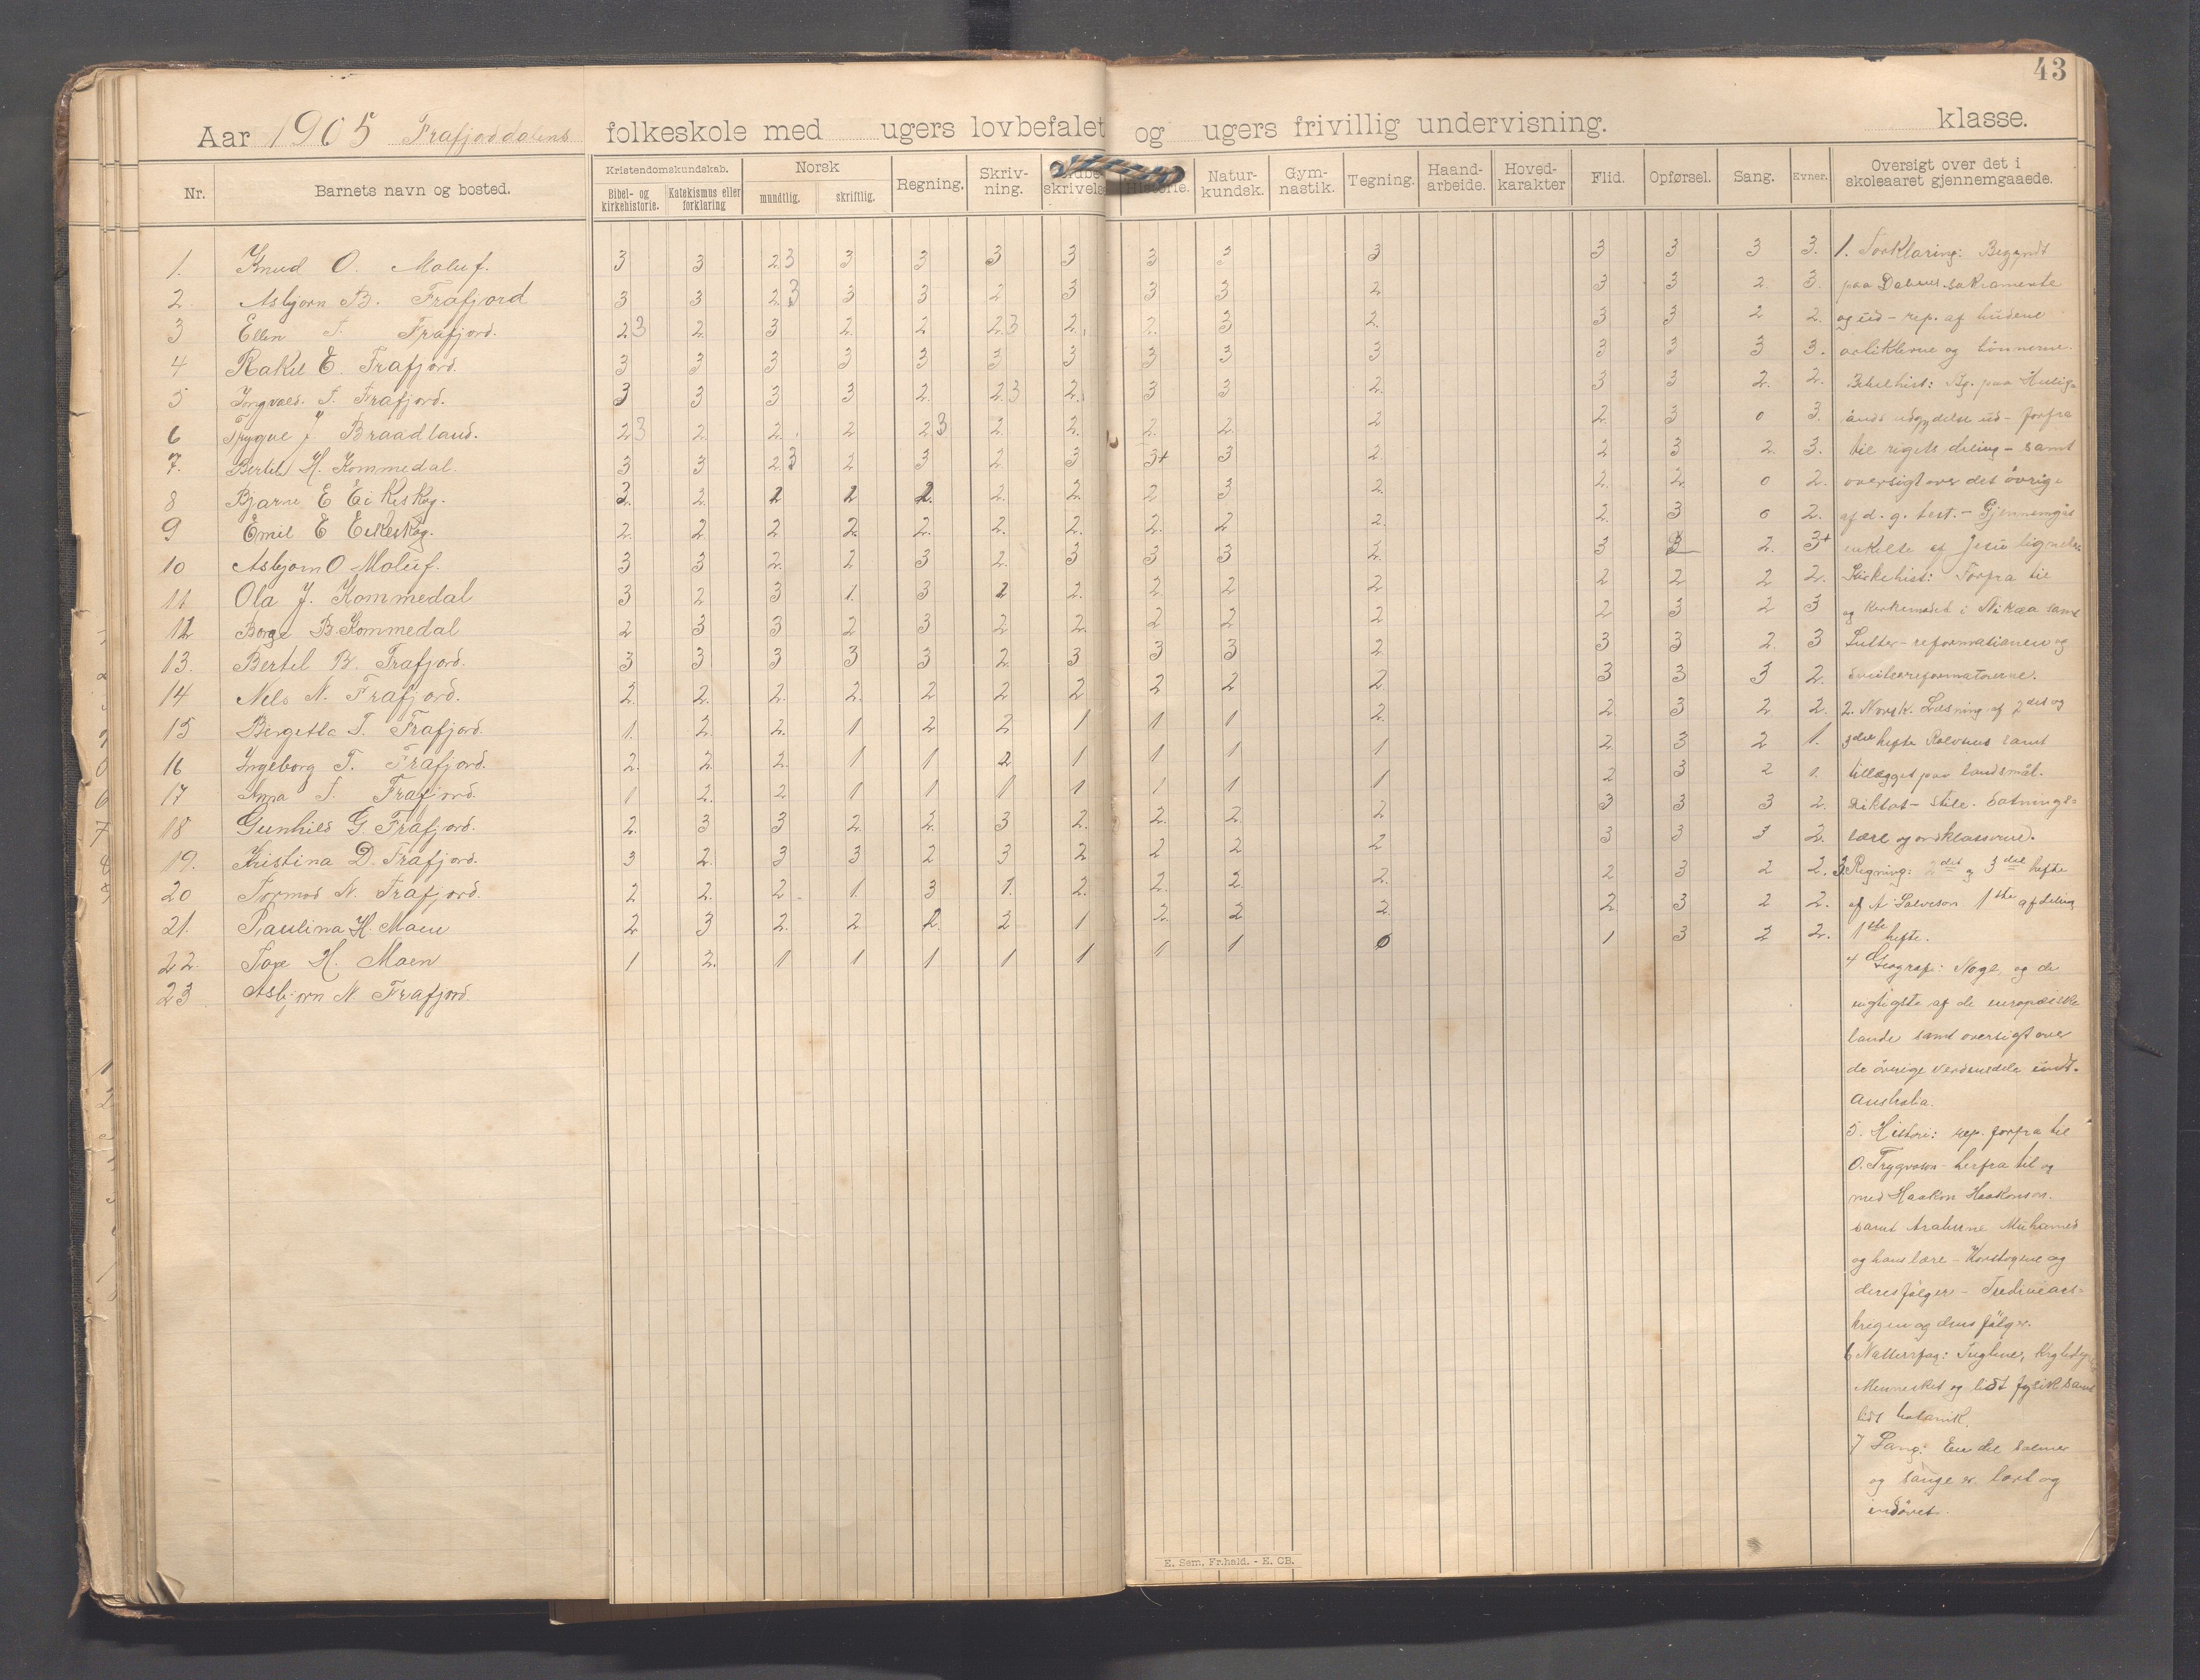 43
Aar 1905 Frafjorddalens folkeskole med ugers lovbefalet og ugers frivillig undervisning. klasse.
Nr. Barnets navn og bosted. Kristendomskundskab. Norsk Regning. Skriv-ning. skrivelse Historie. Natur-kundsk. Gym-nastik. Tegning. Haand-arbeide. Hoved-karakter Flid. Opførsel. Sang. Evner. Oversigt over det i skoleaaret gjennemgaaede.
Bibel- og kirkehistorie. Katekismus eller forklaring mundtlig. skriftlig.
1. Knud O. Maluf. 3 3 23 3 3 3 3 3 3 3 3 3 3 3.
2. Asbjørn B. Frafjord 3 3 23 3 3 2 3 3 3 2 3 3 2. 3.
3 Ellen T. Frafjord. 23 2. 3 2. 2 23 2. 2. 3 2. 3 3 2 2.
4 Rakel E. Frafjord. 3 3 3 3 3 3 3 3 3 3 3 3 3 3.
5 Ingvald. T. Frafjord. 3 3 3 3 2. 23 2. 3 3 2. 3 3 2. 2.
6 Trygve J Braadland. 23 2. 2. 2 23 2. 2. 2. 2. 2 2. 3 0 3.
7. Bertel H. Kommedal. 3 3 23 2 3 2. 3 3+ 3 2 2 3 2. 3.
8 Bjarne E Eikeskog. 2. 2. 2 2 2. 2. 2. 2 3 2. 2. 2. 0 2.
9 Emil E Eikeskog. 2. 2 2 2. 2. 2. 2. 2. 2 2. 2. 3 0 2.
10 Asbjørn O Maluf. 3 3 2. 2 3 2. 3 3 3 2. 3 3 2. 3+
11 Ola J. Kommedal 3 2 3 1. 3 2 2. 2 2 2 2 2 2 2.
12 Børge B. Kommedal 2 3 3 2 3 2 2. 2 2 2 2 3 2 3
13. Bertel B. Frafjord. 3 3 3 3 3 2. 3 3 3 2 3 3 2. 3
14 Nels N. Frafjord. 2. 2. 2. 2. 2 2 2 2 2 2 3 3 3 2.
15 Bergitta T. Frafjord 1. 2. 2. 1 2 2 1 1 1 2. 2. 3 2 2.
16 Ingeborg T. Frafjord. 2. 2. 2. 1 1 2 1 1 1 1 2. 3 2 1.
17 Anna T. Frafjord. 1 2. 2 1 1 1 1 1 1 1 2 3 2 1.
18 Gunhild G. Frafjord. 2. 3 3 2. 2. 3 2. 2. 2. 2 3 3 3 2.
19. Kristina D. Frafjord. 3 2. 3 3 2 3 2 2 2 2 3 3 3 2.
20 Tormod N. Frafjord. 2 2. 2. 1. 3 1. 2. 2. 2. 2. 2 3 2 2.
21. Paulina H. Maen 2. 3 2. 2 2. 2 1 2. 2 2 2. 3 2 2.
22. Tore H. Maen 1 2. 1 1 1 1 1 1 1 0 1 3 2 2.
23 Asbjørn N. Frafjord.
1. Forklaring: Begyndt
paa sakramente
og ud - rep. af budene
artiklerne og bønnerne.
Bibelhist: Bg. paa Hellig-
ånds udgydelse ud - forfra
til rigets deling - samt
oversigt over det øvrige
af d. g. test. - Gjennemgåt
enkelte af Jesu lignelser
Kirkehist: Forfra til
og kirkemødet i Nikæa samt
Luther - reformationen og
2. Norsk. Læsning af 2det og
3die hefte Rolvsens samt
tillægget paa landsmål.
Diktat - stile. Sætnings-
lære og ordklasserne.
3. Regning: 2det og 3die hefte
af A Salveson 1ste afdeling
1ste hefte.
4 Geograf: Norge, og de
vigtigste af de europæiske
lande samt oversigt over
de øvrige verdensdele undt.
Australia.
5. Historie: rep. forfra til
O. Trygvason - herfra til og
med Haakon Haakonson.
samt Araberne Muhamed
og hans lære - Korstogene og
deres følger - Trediveaars-
krigen og dens følger.
6 Naturfag: Fuglene,
Mennesket og lidt fysik samt
lidt botanik.
7 Sang: En del salmer
og sange er lært og
indøvet.
E. Sem, Fr.hald. - K. CB.